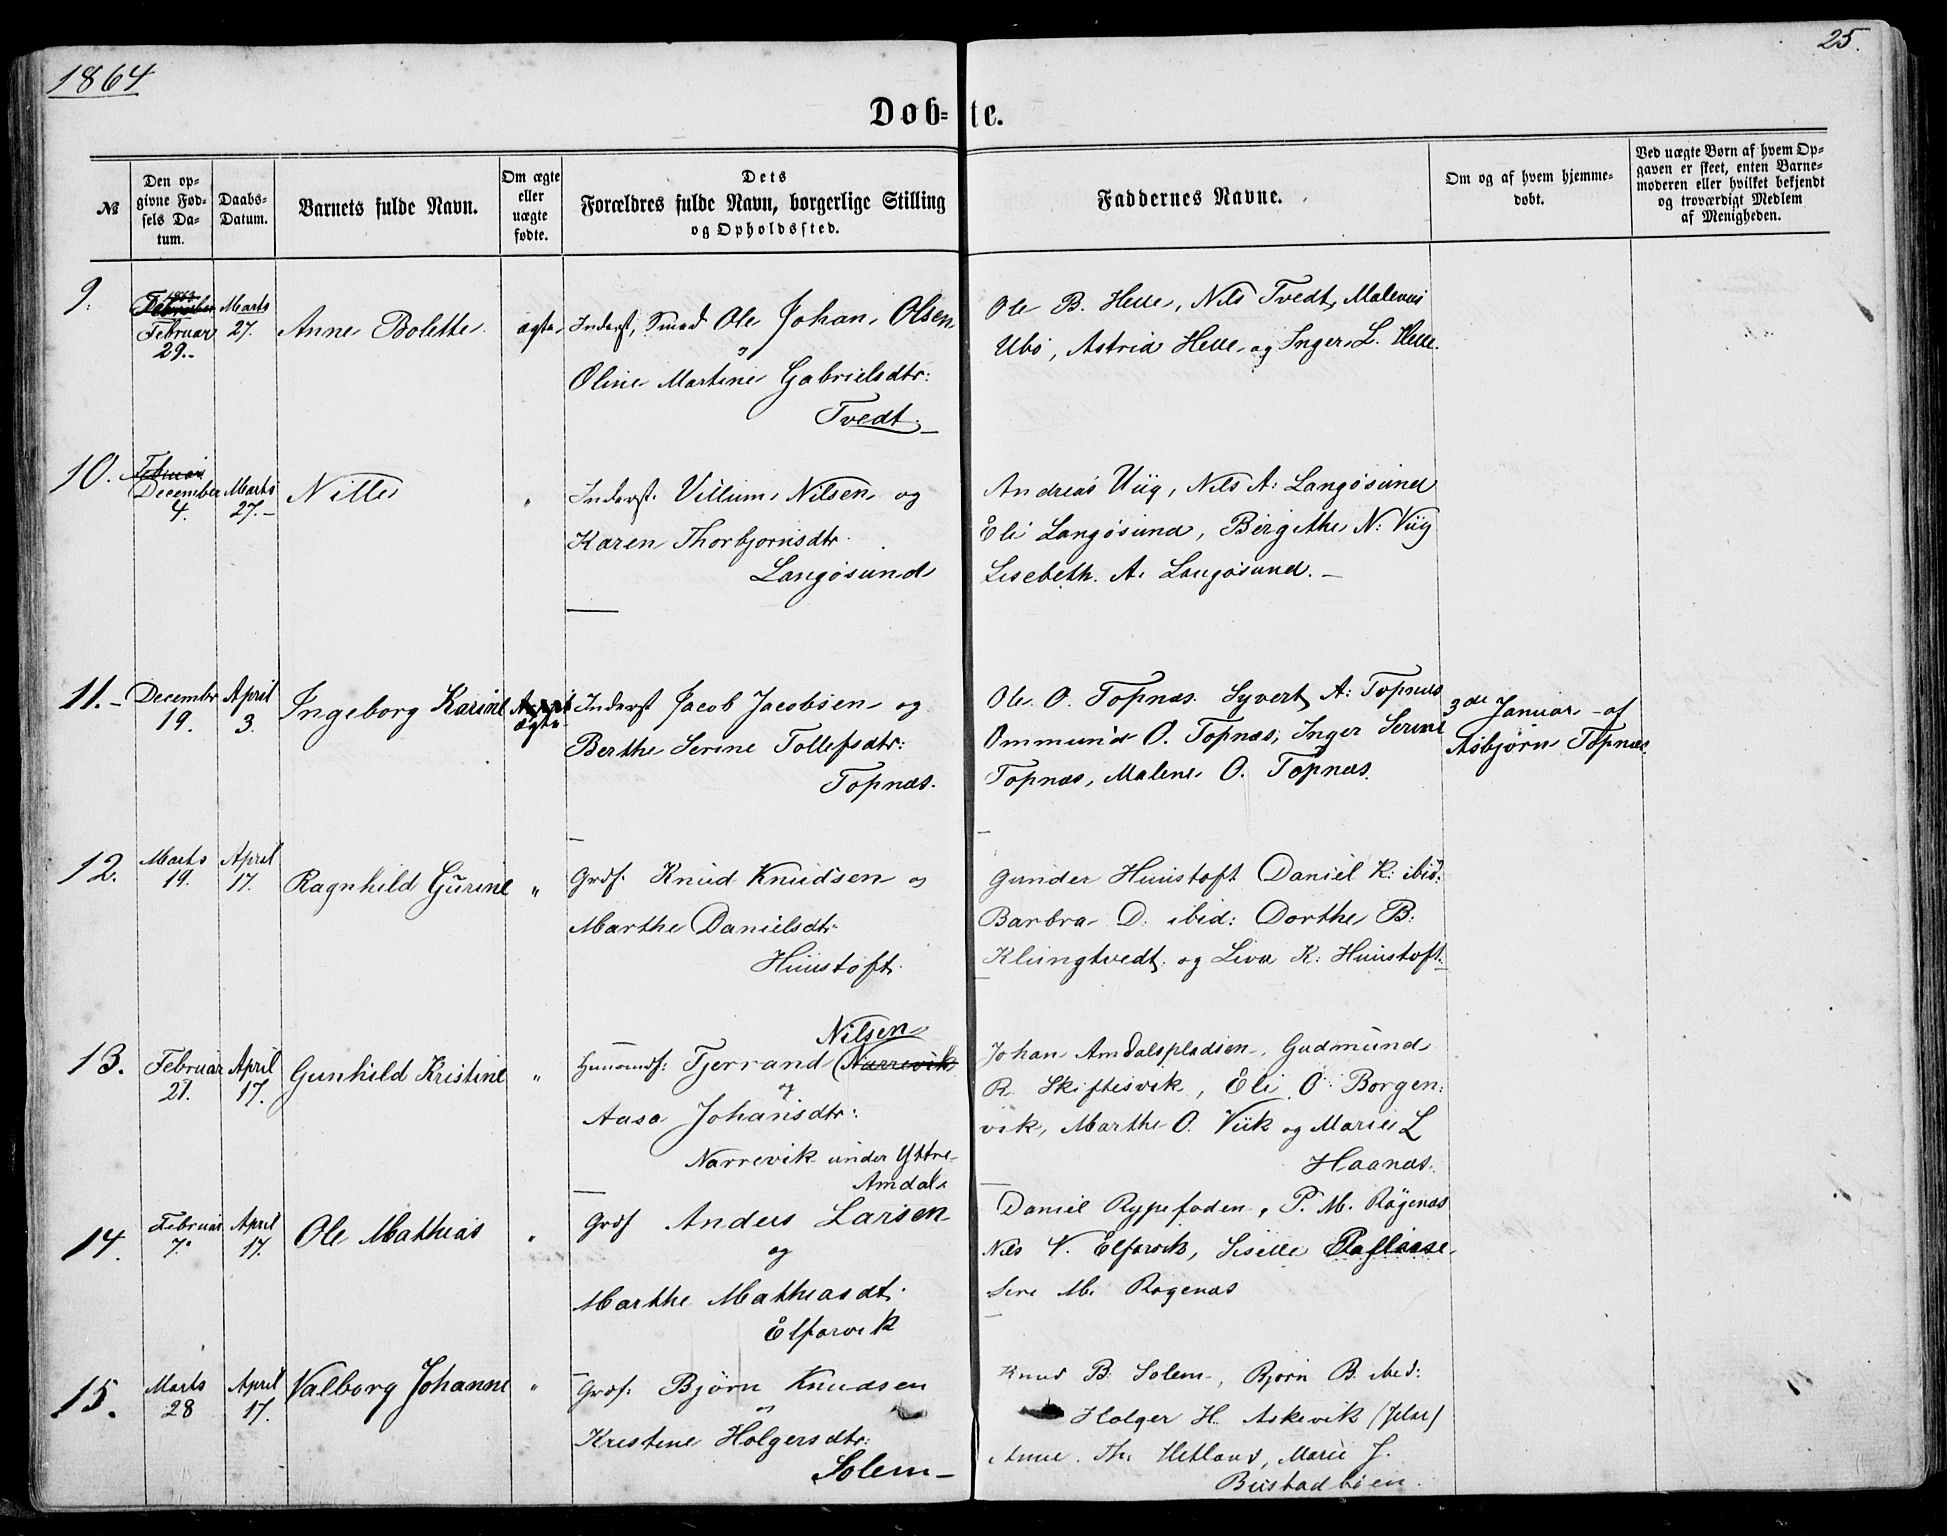 1864
25.
Døb-te.
№
Den opgivne Fødsels Datum.
Daabs-Datum.
Barnets fulde Navn.
Om ægte eller uægte fødte.
Dets Forældres fulde Navn, borgerlige Stilling og Opholdssted.
Faddernes Navne.
Om og af hvem hjemmedøbt.
Ved uægte Børn af hvem Opgaven er skeet, enten Barnemoderen eller hvilket bekjendt og troværdigt Medlem af Menigheden.
9.
1863
Februar
29.
Marts
27.
Anne Bolette
ægte
Inderst, Smed Ole Johan Olsen
og
Oline Martine Gabrielsdtr:
Tvedt.
Ole B. Helle, Nils Tvedt, Malenus
Ubø, Astrid Helle og Inger L. Helle.
10.
Februar
December
4.
Marts
27.
Nille
"
Inderst. Villum Nilsen og
Karen Thorbjornsdtr.
Langøsund
Andreas Viig, Nils A: Langøsund
Eli Langøsund, Birgithe N: Viig
Lisebeth. A. Langøsund.
11.
Decembr
19.
April
3.
Ingeborg Karine
ægte
Inderst Jacob Jacobsen og
Berthe Serine Tollefsdtr:
Topnæs.
Ole O. Topnæs. Syvert A: Topnæs
Ommund O. Topnæs, Inger Serine
Topnæs, Malene O. Topnæs.
3de Januar af
Asbjørn Topnæs
12.
Marts
19.
April
17.
Ragnhild Gurine
"
Grdf. Knud Knudsen og
Marthe Danielsdtr.
Huustoft.
Gunder Huustoft Daniel K: ibid:
Barbra D. ibid: Dorthe B:
Klungtvedt. og Liva K: Huustoft.
13.
Februar
21.
April
17.
Gunhild Kristine
"
Nilsen
Huusmdf: Tjerrand (Narrevik)
og
Aasa Johansdtr:
Narrevik under Yttre
Amdal
Johan Amdalspladsen, Gudmund
R. Skiftesvik, Eli O Borgen:
vik, Marthe O. Viik og Marie L
Haanæs.
14.
Februar
7.
April
17.
Ole Mathias
"
Grdf Anders Larsen
og
Marthe Mathiasdt.
Elfarvik
Daniel Rypefoden, P. M. Røgenæs
Nils V. Elfarvik, Siselle
Sire M. Røgenæs
15.
Marts
28
April
17.
Valborg Johanne
"
Grdf. Bjørn Knudsen
og
Kristine Holgersdtr:
Solem
Knud B. Solem, Bjørn B. ibid:
Holger H. Askevik (Jelse)
Anne Th. Hetland, Marie J.
Bustadbøen.